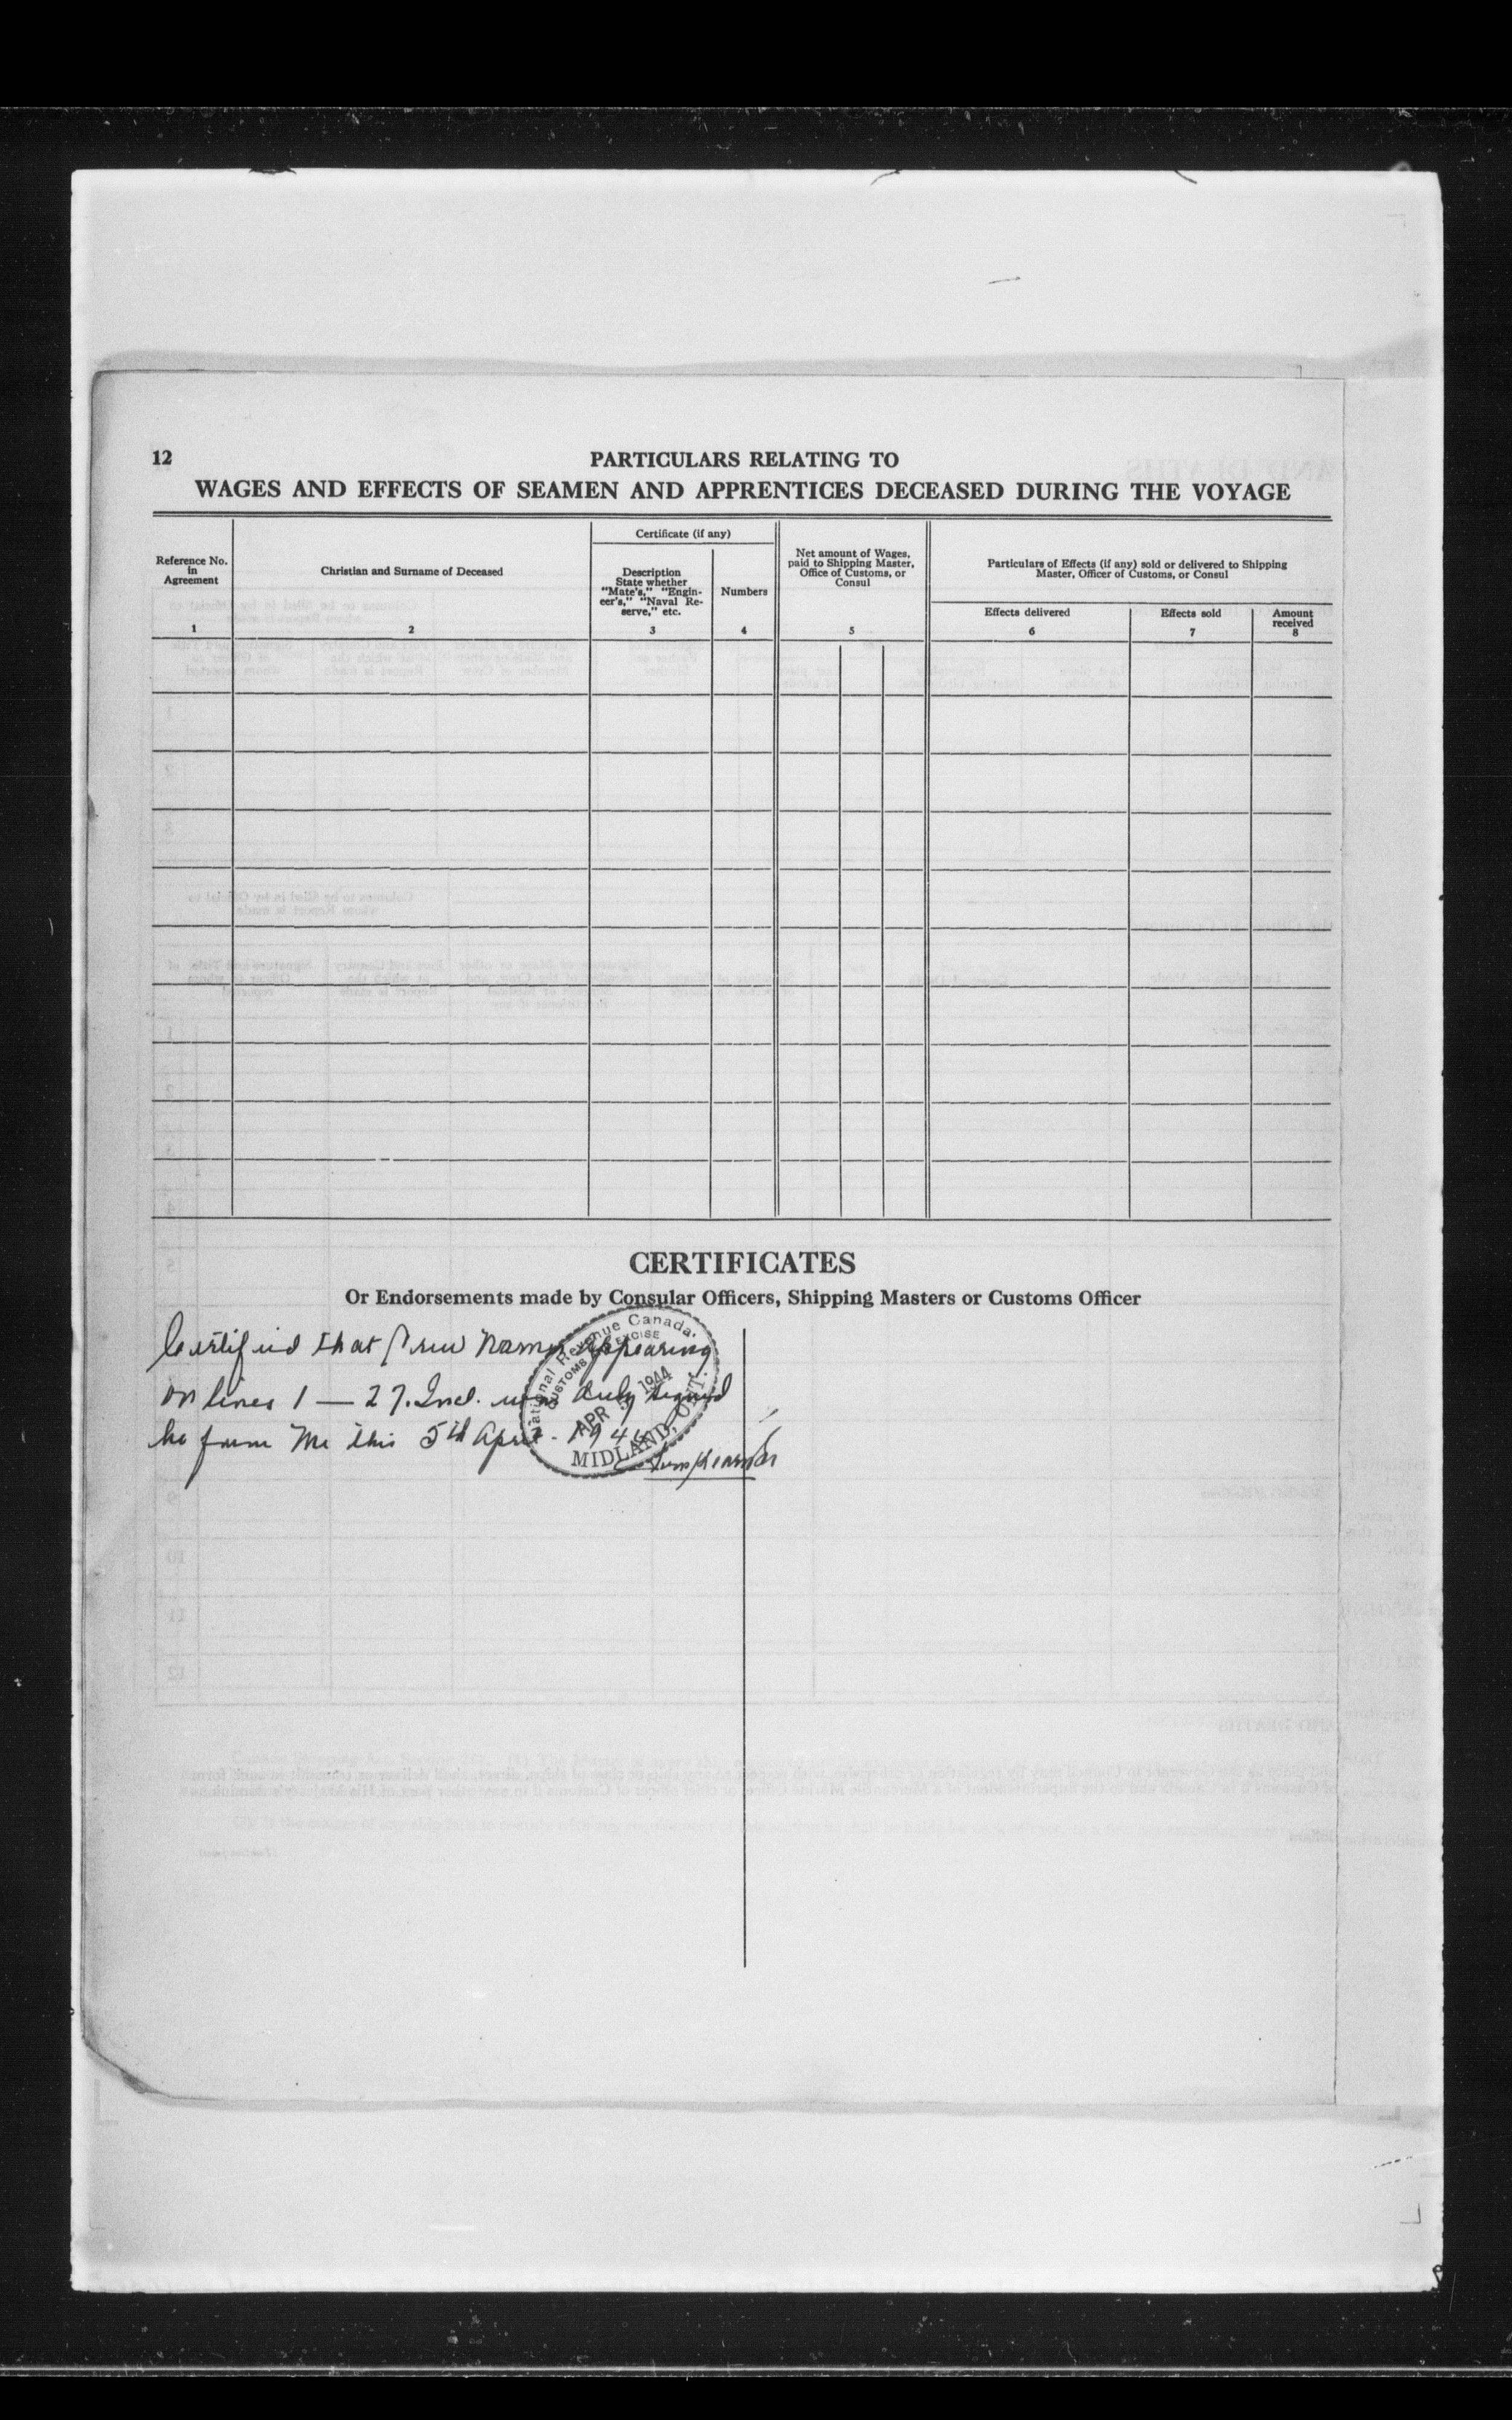 12
PARTICULARS RELATING TO
WAGES AND EFFECTS OF SEAMEN AND APPRENTICES DECEASED DURING THE VOYAGE
Reference No.
in
Agreement
1
Christian and Surname of Deceased
2
Certificate (if any)
Description
State whether
"Mate's," "Engin-
eer's," "Naval Re-
serve," etc.
3
Numbers
4
Net amount of Wages,
paid to Shipping Master,
Office of Customs, or
Consul
5
Particulars of Effects (if any) sold or delivered to Shipping
Master, Officer of Customs, or Consul
Effects delivered
6
Effects sold
7
Amount
received
8
CERTIFICATES
Or Endorsements made by Consular Officers, Shipping Masters or Customs Officer
Certified that Crew Names appearing
on lines 1 — 27. Incl. were duly signed
before Me this 5th April - 1944
National Revenue Canada
CUSTOMS EXCISE
APR 5 1944
MIDLAND, ONT.